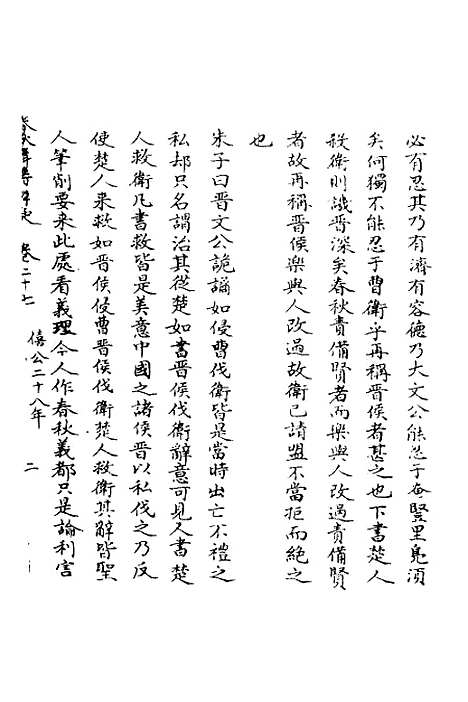 必有忍其乃有濟有容德乃大文公能忍于奄豎里鳧須
矣何獨不能忍于曹衛乎再稱晉侯者甚之也下書楚人
救衛則譏晉深矣春秋責備賢者而樂與人改過責備賢
者故再稱晉侯樂與人改過故衛已請盟不當拒而絕之
也
朱子曰晉文公詭譎如侵曹伐衛皆是當時出亡不禮之
私却只名謂治其從楚如書晉侯伐衛辭意可見又書楚
人救衛凡書救皆是美意中國之諸侯晉以私伐之乃反
使楚人來救如晉侯侵曹晉侯伐衛楚人救衛其辭皆聖
人筆削要來此處看義理今人作春秋義都只是論利害
卷二十七 僖公二十八年 二